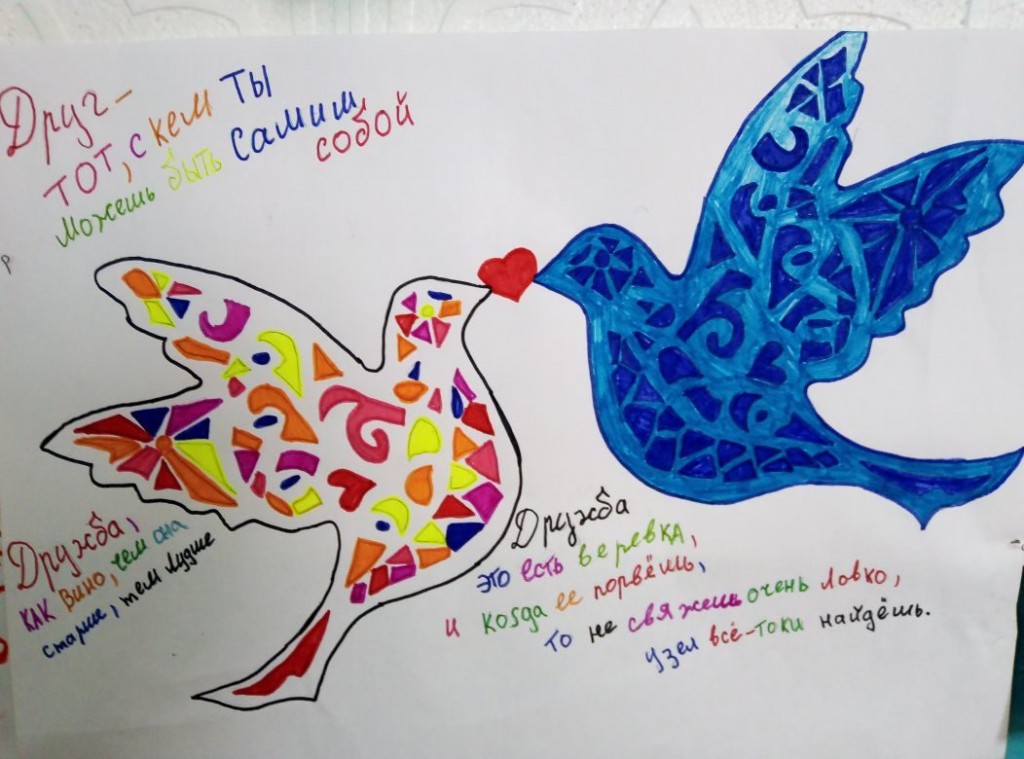 Друг -
тот, с кем ты
можешь быть самиим
собой
Дружба,
как вино, чем она
старше, тем лудше
Дружба
это есть веревка,
и когда ее порвёшь,
то не свяжешь очень ловко,
узел всё-токи найдёшь.